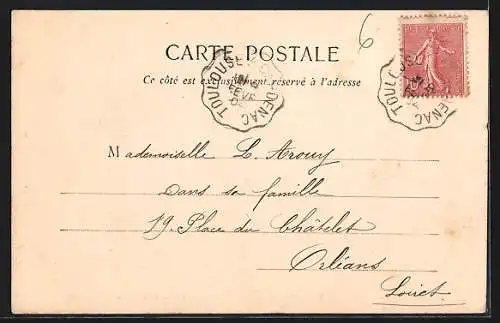 6
CARTE POSTALE
Ce côté est exclusivement réservé à l'adresse
TOULOUSE
DENAC
TOULOUSE
DENAC
Mademoiselle L. Arouy
Dans sa famille
19. Place du Châtelet
Orléans
Loiret